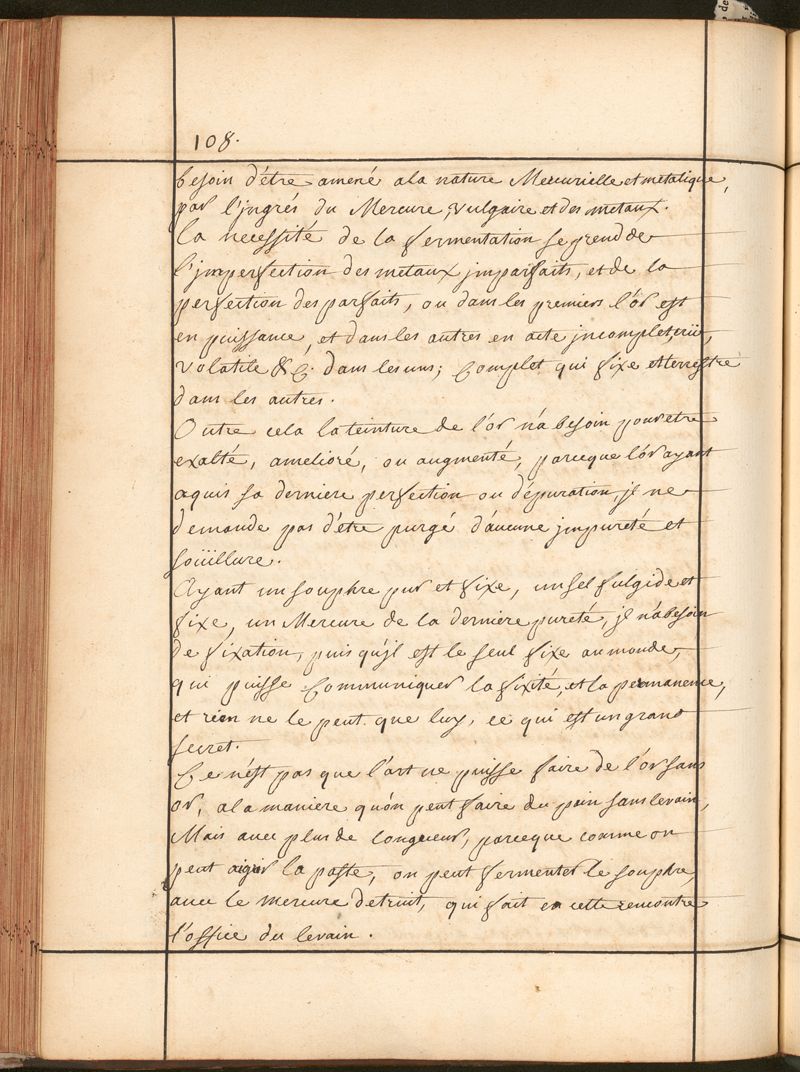 108.
besoin d'étre amené a la nature Mercurielle et metalique,
par l'ingrés du Mercure vulgaire et des metaux.
La necessité de la fermentation se prend de
l'jmperfection des metaux jmparfaits, et de la
perfection des parfaits, ou dans les premiers l'or est
en puissance, et dans les autres en acte, jncomplet, crû,
volatile &c. dans les uns; Complet qui fixe et terrestre
dans les autres.
Outre cela la teinture de l'or n'a besoin pour etre
exalté, amelioré, ou augmenté, parceque l'or ayant
aquis sa derniere perfection ou dépuration, jl ne
demande pas d'étre purgé d'aucune jmpureté et
soüillure.
Ayant un souphre pur et fixe, un sel fulgide et
fixe, un Mercure de la derniere pureté, jl n'a besoin
de fixation, puis qu'jl est le seul fixe au monde,
qui puisse Communiquer la fixité, et la permanence,
et rien ne le peut que luy, ce qui est un grand
secret.
Ce n'est pas que l'art ne puisse faire de l'or sans
or, a la maniere qu'on peut faire du pain sans levain,
Mais avec plus de longueur, parceque comme on
peut aigrir la paste, on peut fermenter le souphre,
avec le mercure detruit, qui fait en cette rencontre
l'office du levain.